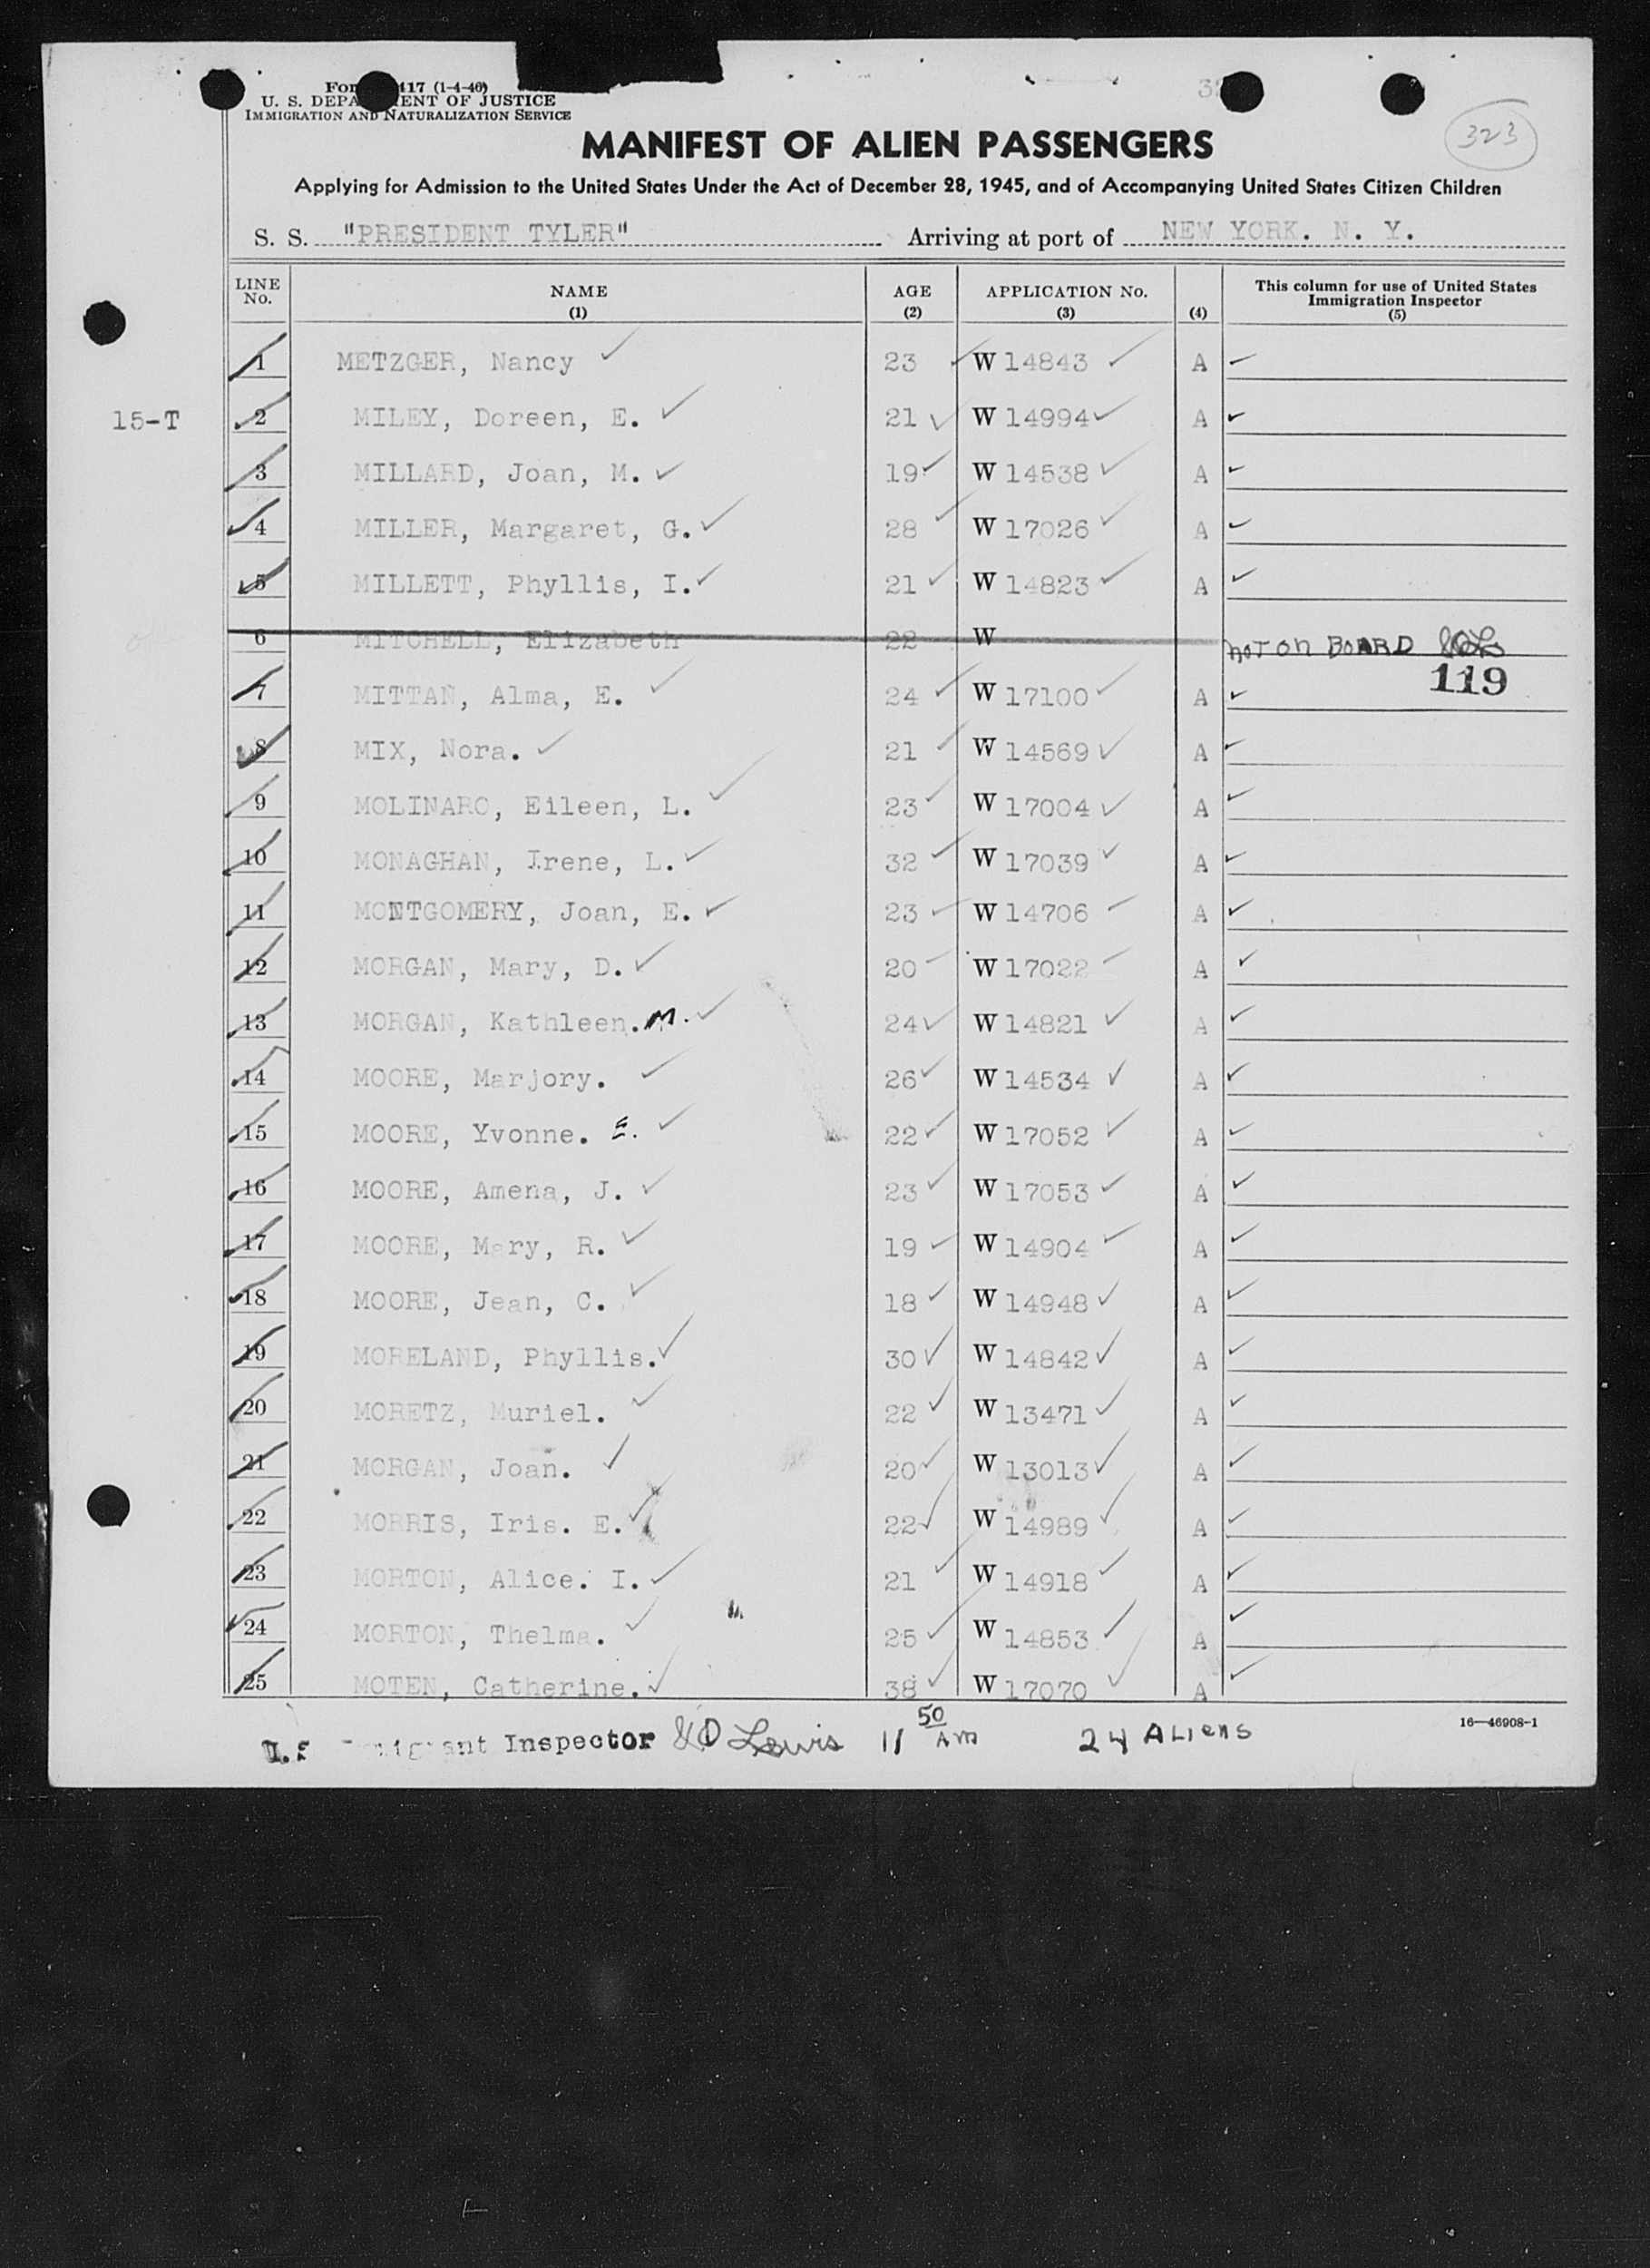 Form 417 (1-4-46)
U. S. DEPARTMENT OF JUSTICE
IMMIGRATION AND NATURALIZATION SERVICE
323
MANIFEST OF ALIEN PASSENGERS
Applying for Admission to the United States Under the Act of December 28, 1945, and of Accompanying United States Citizen Children
S. S. "PRESIDENT TYLER" Arriving at port of NEW YORK. N. Y.
LINE No. NAME (1) AGE (2) APPLICATION No. (3) (4) This column for use of United States Immigration Inspector (5)
1 METZGER, Nancy 23 W 14843 A
15-T 2 MILEY, Doreen, E. 21 W 14994 A
3 MILLARD, Joan, M. 19 W 14538 A
4 MILLER, Margaret, G. 28 W 17026 A
5 MILLETT, Phyllis, I. 21 W 14823 A
6 MITCHELL, Elizabeth 22 W NOT ON BOARD
119
7 MITTAN, Alma, E. 24 W 17100 A
8 MIX, Nora. 21 W 14569 A
9 MOLINARO, Eileen, L. 23 W 17004 A
10 MONAGHAN, Irene, L. 32 W 17039 A
11 MONTGOMERY, Joan, E. 23 W 14706 A
12 MORGAN, Mary, D. 20 W 17022 A
13 MORGAN, Kathleen. M. 24 W 14821 A
14 MOORE, Marjory. 26 W 14534 A
15 MOORE, Yvonne. E. 22 W 17052 A
16 MOORE, Amena, J. 23 W 17053 A
17 MOORE, Mary, R. 19 W 14904 A
18 MOORE, Jean, C. 18 W 14948 A
19 MORELAND, Phyllis. 30 W 14842 A
20 MORETZ, Muriel. 22 W 13471 A
21 MORGAN, Joan. 20 W 13013 A
22 MORRIS, Iris. E. 22 W 14989 A
23 MORTON, Alice. I. 21 W 14918 A
24 MORTON, Thelma. 25 W 14853 A
25 MOTEN, Catherine. 38 W 17070 A
16—46908-1
Inspector Lewis 11 50 AM 24 ALIENS